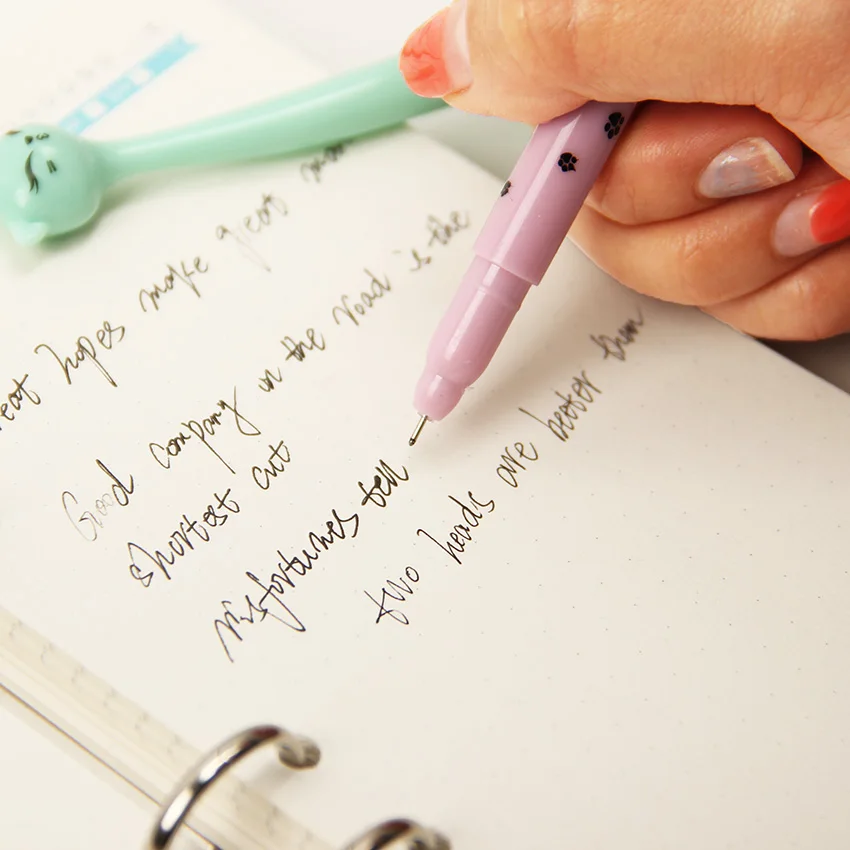 hopes make great
Good company in the road is the
shortest cut
misfortunes tell
two heads are better than